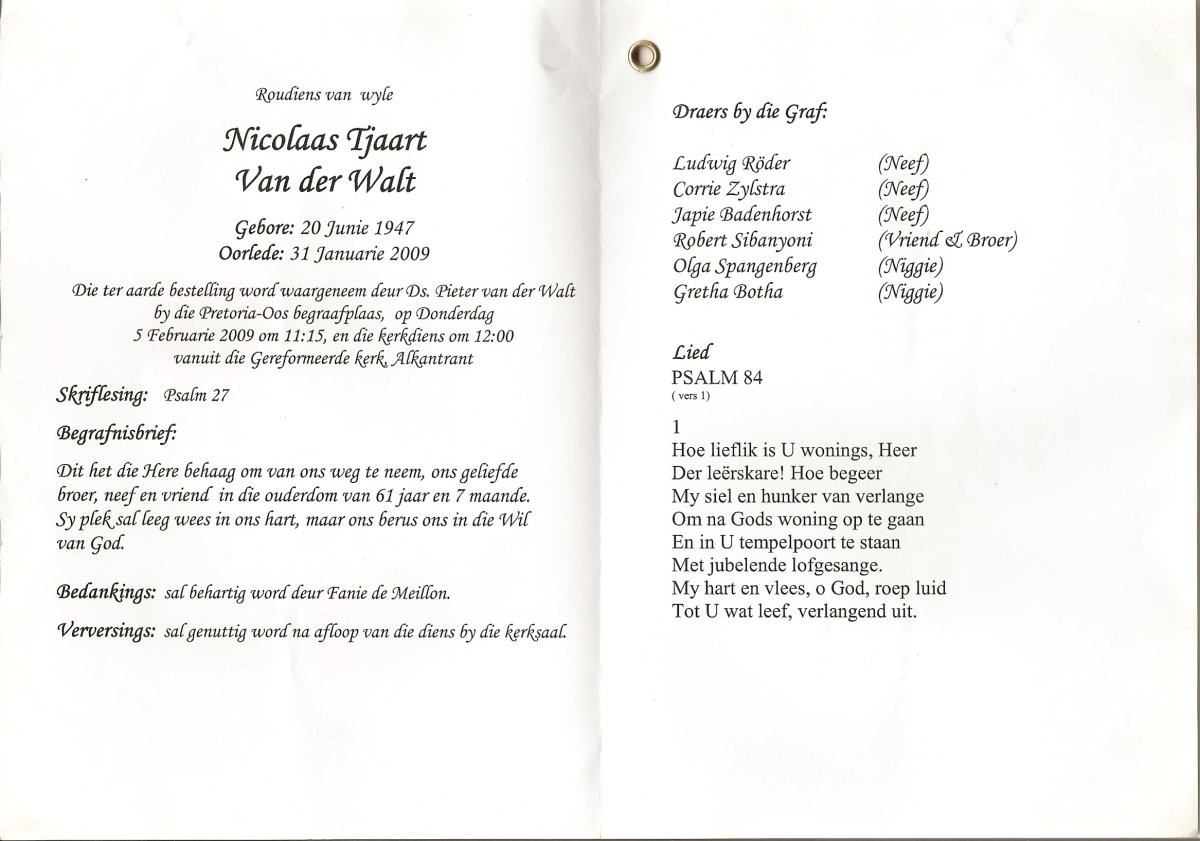 Roudiens van wyle
Nicolaas Tjaart
Van der Walt
Gebore: 20 Junie 1947
Oorlede: 31 Januarie 2009
Die ter aarde bestelling word waargeneem deur Ds. Pieter van der Walt
by die Pretoria-Oos begraafplaas, op Donderdag
5 Februarie 2009 om 11:15, en die kerkdiens om 12:00
vanuit die Gereformeerde kerk, Alkantrant
Skriflesing: Psalm 27
Begrafnisbrief:
Dit het die Here behaag om van ons weg te neem, ons geliefde
broer, neef en vriend in die ouderdom van 61 jaar en 7 maande.
Sy plek sal leeg wees in ons hart, maar ons berus ons in die Wil
van God.
Bedankings: sal behartig word deur Fanie de Meillon.
Verversings: sal genuttig word na afloop van die diens by die kerksaal.
Draers by die Graf:
Ludwig Röder (Neef)
Corrie Zylstra (Neef)
Japie Badenhorst (Neef)
Robert Sibanyoni (Vriend & Broer)
Olga Spangenberg (Niggie)
Gretha Botha (Niggie)
Lied
PSALM 84
( vers 1)
1
Hoe lieflik is U wonings, Heer
Der leërskare! Hoe begeer
My siel en hunker van verlange
Om na Gods woning op te gaan
En in U tempelpoort te staan
Met jubelende lofgesange.
My hart en vlees, o God, roep luid
Tot U wat leef, verlangend uit.